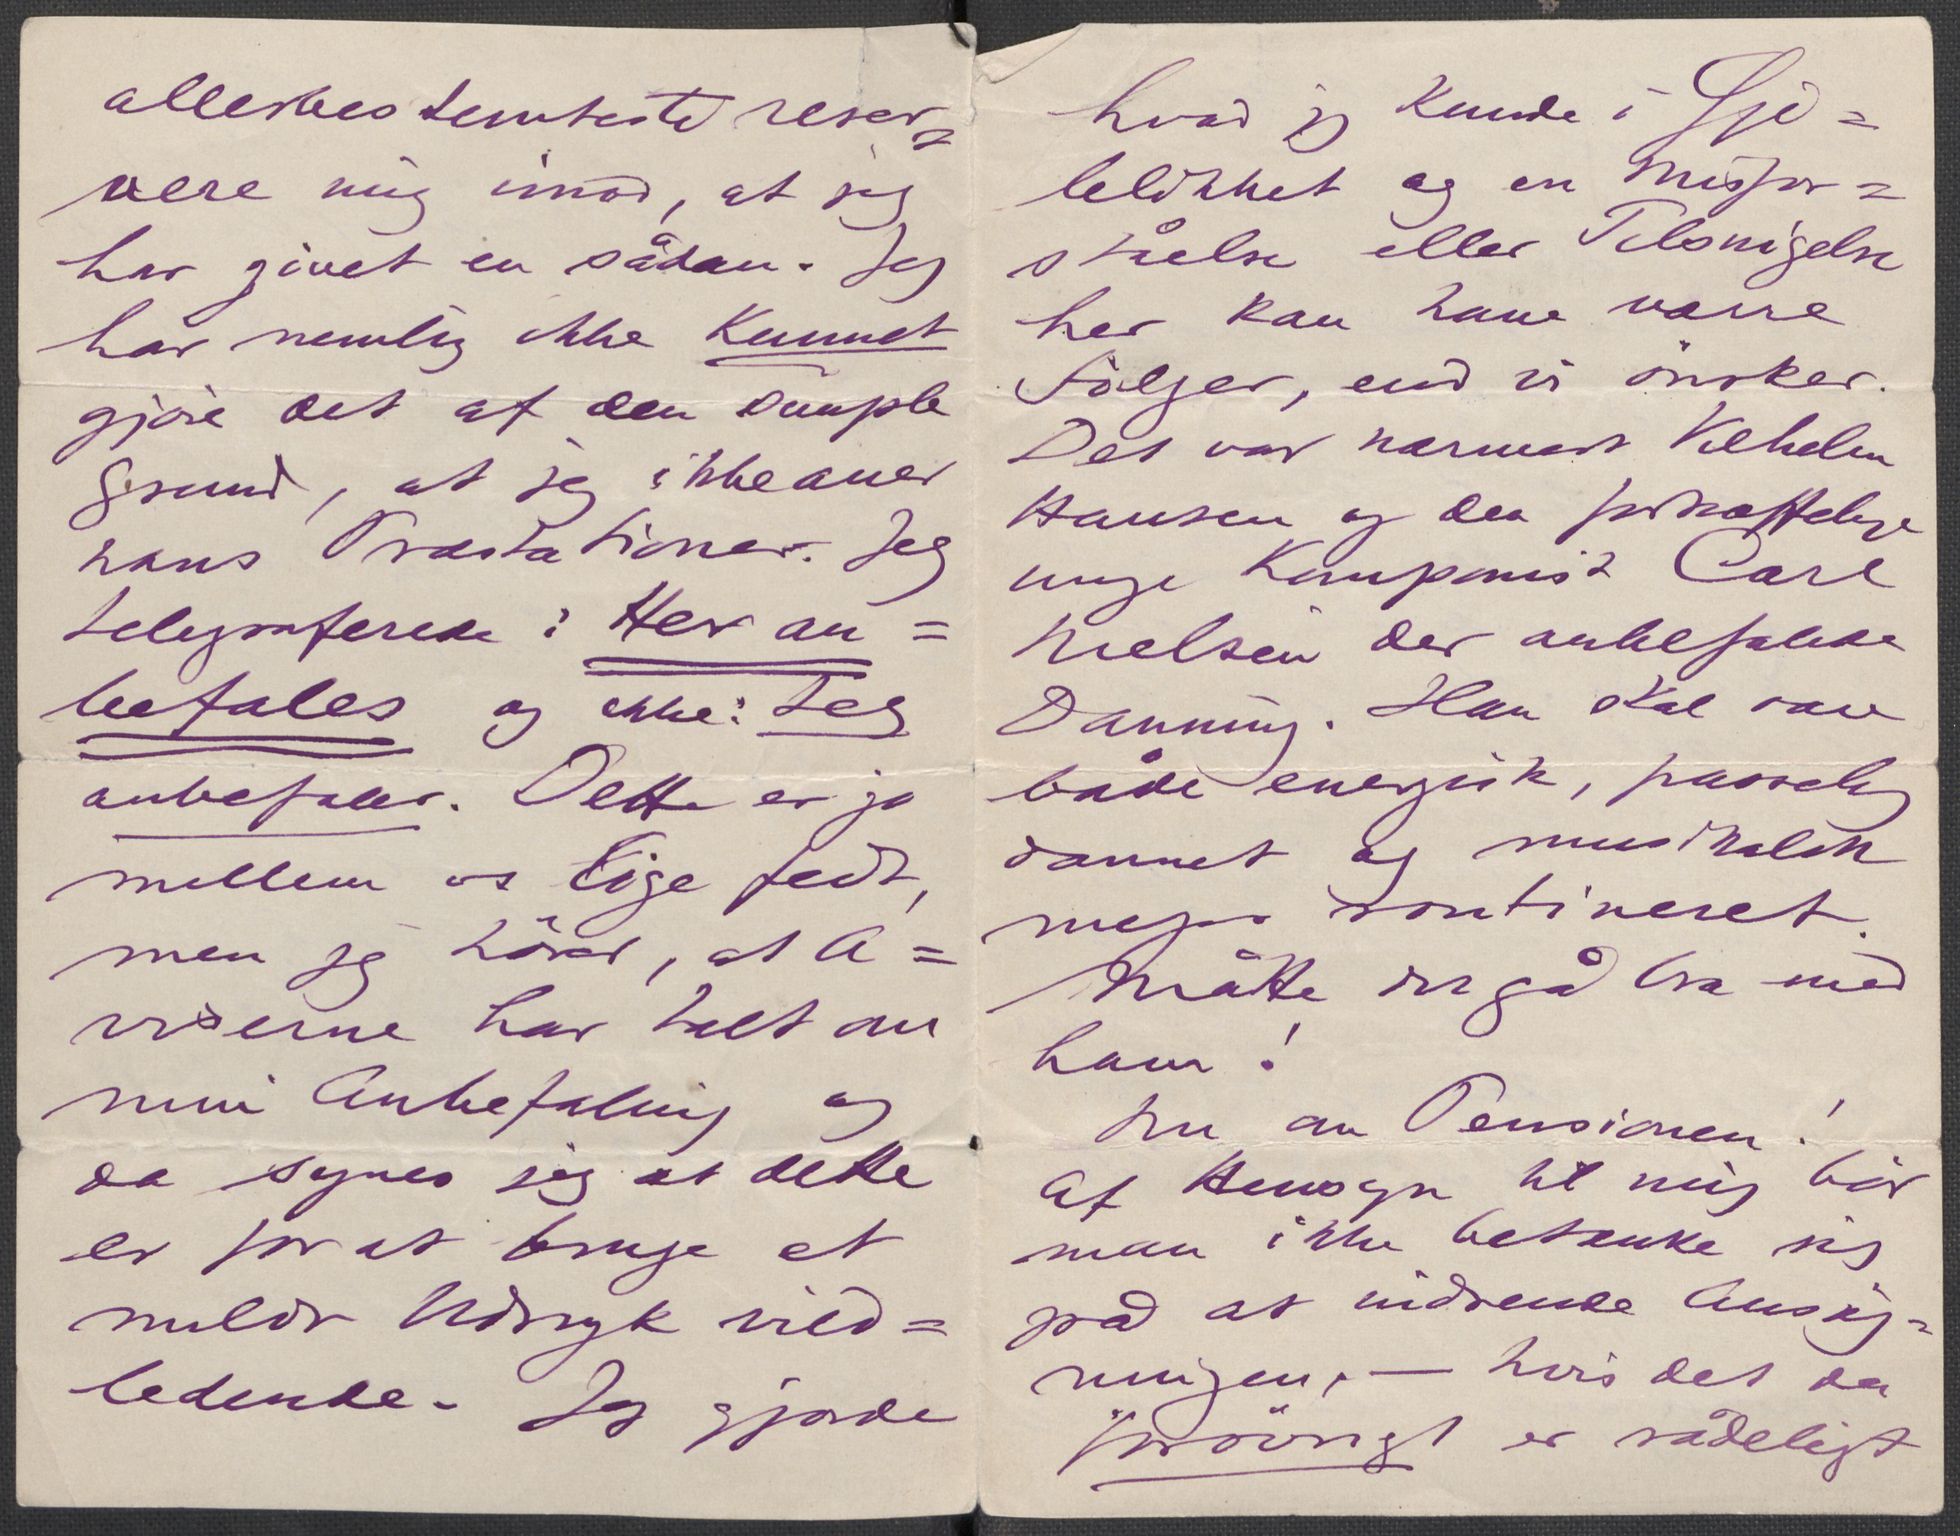 allerbestemteste reser=
vere mig imod, at jeg
har givet en sådan. Jeg
har nemlig ikke Kunnet
gjøre det af den simple
Grund, at jeg ikke aner
hans Præstationer. Jeg
telegraferede: Her an=
befales og ikke: Jeg
anbefaler. Dette er jo
mellem os lige fedt,
men jeg hörer, at A=
viserne har talt om
min Anbefaling og
da synes jeg at dette
er for at bruge et
mildt Udtryk vild=
ledende. Jeg gjorde
hvad jeg kunde i Gjø=
og en Misfor=
ståelse eller Tilsnigelse
her kan have værre
Fölger, end vi önsker.
Det var nærmest Vilhelm
Hansen og den fortræffelige
unge Komponist Carl
Nielsen der anbefalede
Danning. Han skal være
både energisk, passelig
dannet og musikalsk
meget routineret.
Måtte det gå bra med
ham!
Nu om Pensionen!
Af Hensyn til mig bör
man ikke betænke sig
på at inddrage Ansøg=
ningen, — hvis det da
forövrigt er rådeligt